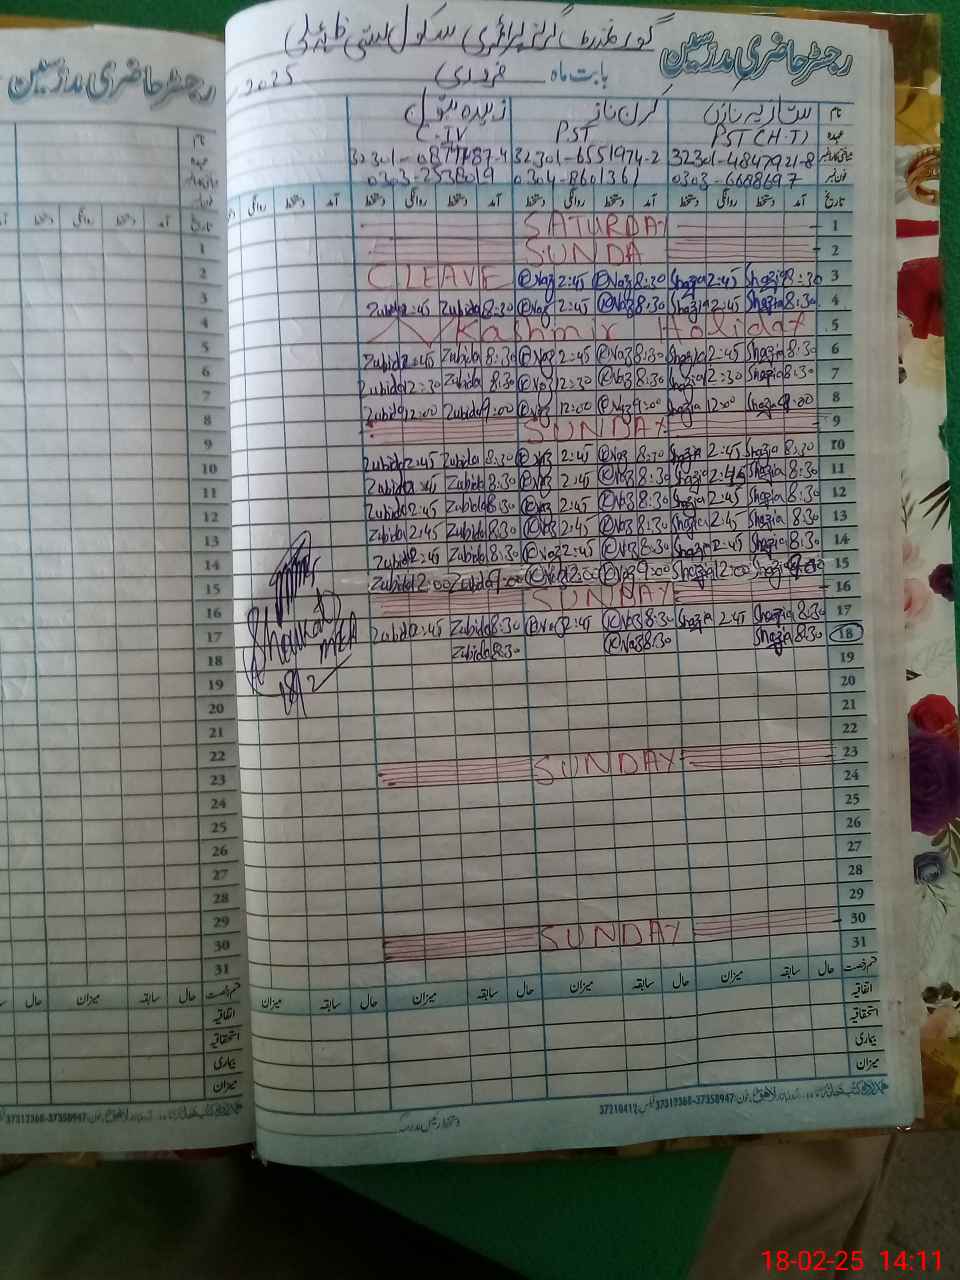 رجسٹر حاضری مدرسین
گورنمنٹ گرلز پرائمری سکول بستی
رجسٹر حاضری مدرسین بابت ماہ فروری 2025
نام شازیہ نازن کرن ناز زبیدہ بتول
عہدہ PST(H.T) PST C.IV
32301-4847921-8 32301-6551974-2
فون نمبر 0303-6688697 0304-8601361 0303-2538019
تاریخ آمد دستخط روانگی دستخط آمد دستخط روانگی دستخط آمد دستخط روانگی دستخط آمد دستخط روانگی
1 SATURDAY
2 SUNDA
3 Shazia 8:30 Shazia 2:45 K Naz 8:30 K Naz 2:45 C LEAVE
4 Shazia 8:30 Shazia 2:45 K Naz 8:30 K Naz 2:45 Zubida 8:30 Zubida 2:45
5 Kashmir Holiday
6 Shazia 8:30 Shazia 2:45 K Naz 8:30 K Naz 2:45 Zubida 8:30 Zubida 2:45
7 Shazia 8:30 Shazia 12:30 K Naz 8:30 K Naz 12:30 Zubida 8:30 Zubida 12:30
8 Shazia 9:00 Shazia 12:00 K Naz 9:00 K Naz 12:00 Zubida 9:00 Zubida 12:00
9 SUNDAY
10 Shazia 8:30 Shazia 2:45 K Naz 8:30 K Naz 2:45 Zubida 8:30 Zubida 2:45
11 Shazia 8:30 Shazia 2:45 K Naz 8:30 K Naz 2:45 Zubida 8:30 Zubida 2:45
12 Shazia 8:30 Shazia 2:45 K Naz 8:30 K Naz 2:45 Zubida 8:30 Zubida 2:45
13 Shazia 8:30 Shazia 2:45 K Naz 8:30 K Naz 2:45 Zubida 8:30 Zubida 2:45
14 Shazia 8:30 Shazia 2:45 K Naz 8:30 K Naz 2:45 Zubida 8:30 Zubida 2:45
15 Shazia 9:00 Shazia 12:00 K Naz 9:00 K Naz 12:00 Zubida 9:00 Zubida 12:00
16 SUNDAY
17 Shazia 8:30 Shazia 2:45 K Naz 8:30 K Naz 2:45 Zubida 8:30 Zubida 2:45
18 Shazia 8:30 K Naz 8:30 Zubida 8:30
Shaukat
MEA
18/2
19
20
21
22
23 SUNDAY
24
25
26
27
28
29
30 SUNDAY
31
قسم رخصت حال سابقہ میزان حال سابقہ میزان حال سابقہ میزان حال سابقہ میزان
اتفاقیہ
استحقاقیہ
بیماری
میزان
37312368-37358947 37210412
دستخط رئیس مدرسہ
رجسٹر حاضری مدرسین
نام
عہدہ
فون نمبر
تاریخ آمد دستخط روانگی دستخط آمد
1
2
3
4
5
6
7
8
9
10
11
12
13
14
15
16
17
18
19
20
21
22
23
24
25
26
27
28
29
30
31
قسم رخصت حال سابقہ میزان حال
اتفاقیہ
استحقاقیہ
بیماری
میزان
37312368-37358947
18-02-25 14:11